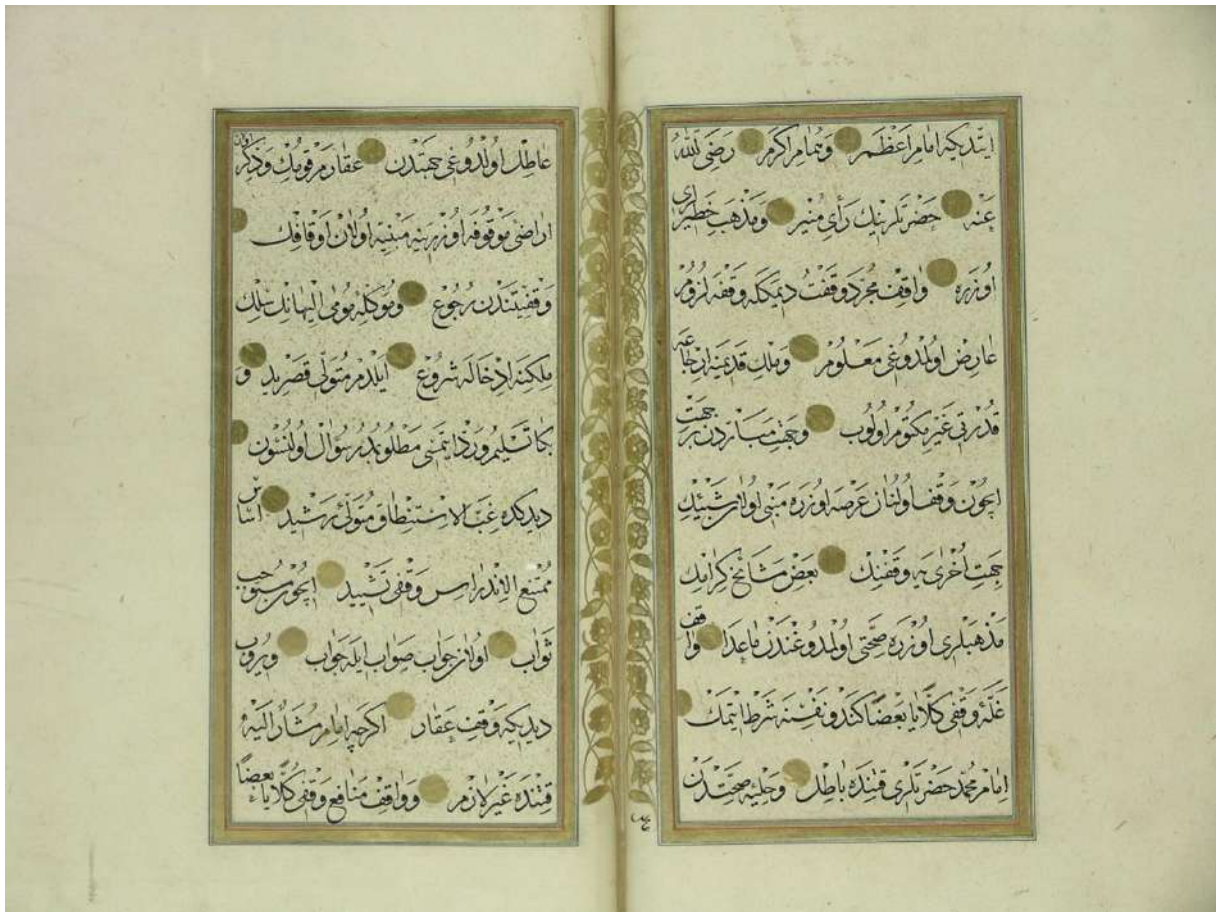 ایتدیکه امام اعظم و همام اکرم رضی الله
عنه حضرتلرینك رأی منیر و مذهب خطیری
اوزره واقف مجرد وقفت دیمکله وقفه لزوم
عارض اولمدوغی معلوم و ملك قدیمنه ارجاعه
قدرتی غیر مکتوم اولوب و جهت مباردن بر جهت
ایچون وقف اولنان عرصه اوزره مبنی اولان شیئك
جهت اخری یه وقفنك بعض مشائخ کرامك
مذهبلری اوزره صحتی اولمدوغندن ماعدا واقف
غلۀ وقفی کلا یا بعضا کندو نفسنه شرط ایتمك
امام محمد حضرتلری قتنده باطل و حلیۀ صحتدن
عاطل اولدوغی جهتدن عقار مرقومك و ذکر اولنان
اراضی موقوفه اوزرینه مبنیه اولان اوقافك
وقفیتندن رجوع و موکلۀ مومی الیهانك سلك
ملکنه ادخاله شروع ایلدم متولی قصرید و
بکا تسلیم ورد ایتمسی مطلوبمدر سؤال اولنسون
دیدکده غب الاستنطاق متولئ رشید اساس
ممتنع الاندراس وقفی تشیید ایچون موجب
ثواب اولان جواب صواب ایله جواب ویروب
دیدیکه وقف عقار اکرچه امام مشار الیه
قتنده غیر لازم و واقف منافع وقفی کلا یا بعضا